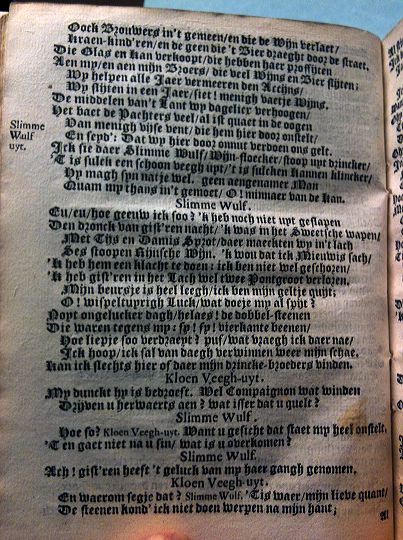 Oock Brouwers in't gemeen/en die de Wijn verlaet/
Kraen-kind'ren/en de geen die 't Bier draeght door de straet.
Die Glas en Kan verkoopt/die hebben haer profijten
Aen my/en aen mijn Broers/ die veel Wijns en Bier slijten;
Wy helpen alle Jaer vermeeren den Accijns/
Wy slijten in een Jaer/siet! menigh vaetje Wijns.
De middelen van't Lant wy dagelicx verhoogen/
Het baet de Pachters veel/al ist quaet in de oogen
Van menigh vijse vent/die hem hier door onstelt/
En seyd': Dat wy hier door onnut verdoen ons gelt.
Slimme
Wulf
uyt.
Ick sie daer Slimme Wulf/Wijn-floecker/stoop upt drincker/
'T is sulck een schoon veegh upt/'t is sulcken kannen klincker/
Hy magh syn natje wel. geen aengenamer Man
Quam my thans in't gemoet/O! minnaer van de Kan.
Slimme Wulf.
Eu/eu/hoe geeuw ick soo? 'k heb noch niet upt geslapen
Den dronck van gist'ren nacht/'k was in het Sweetsche wapen/
Met Tijs en Damis Sprot/daer maeckten wy in't lach
Ses stoopen Rijnsche Wijn. 'k wou dat ick Mieuwis sach/
'K heb hem een klacht te doen: ick ben niet wel geschoren/
'K heb gist'ren in het Lach wel twee Pontgroot verloren.
Mijn beursje is heel leegh/ick ben mijn geltje quijt;
O! wispeltuyrigh Luck/wat doeje my al spijt?
Noyt ongelucker dagh/helaes! de dobbel-steenen
Die waren tegens my: sy! sy! vierkante beenen/
Hoe liepje soo verdraeyt? puf/wat vraegh ick daer nae/
Ick hoop/ick sal van daegh verwinnen weer mijn schae.
Kan ick slechts hier of daer mijn drincke-broeders vinden.
Kloen Veegh-uyt.
My dunckt hy is bedroeft. Wel Compaignon wat winden
Drijven u herwaerts aen? wat isser dat u quelt?
Slimme Wulf.
Hoe so? Kloen Veegh-uyt. Want u gesicht dat staet my heel onstelt.
'T en gaet niet na u sin/wat is u overkomen?
Slimme Wulf.
Ach! gist'ren heeft 't geluck van my haer gangh genomen,
Kloen Veegh-uyt.
En waerom segje dat? Slimme Wulf. 'Tis waer/mijn lieve quant/
De steenen kond' ick niet doen werpen na mijn hant;
Al